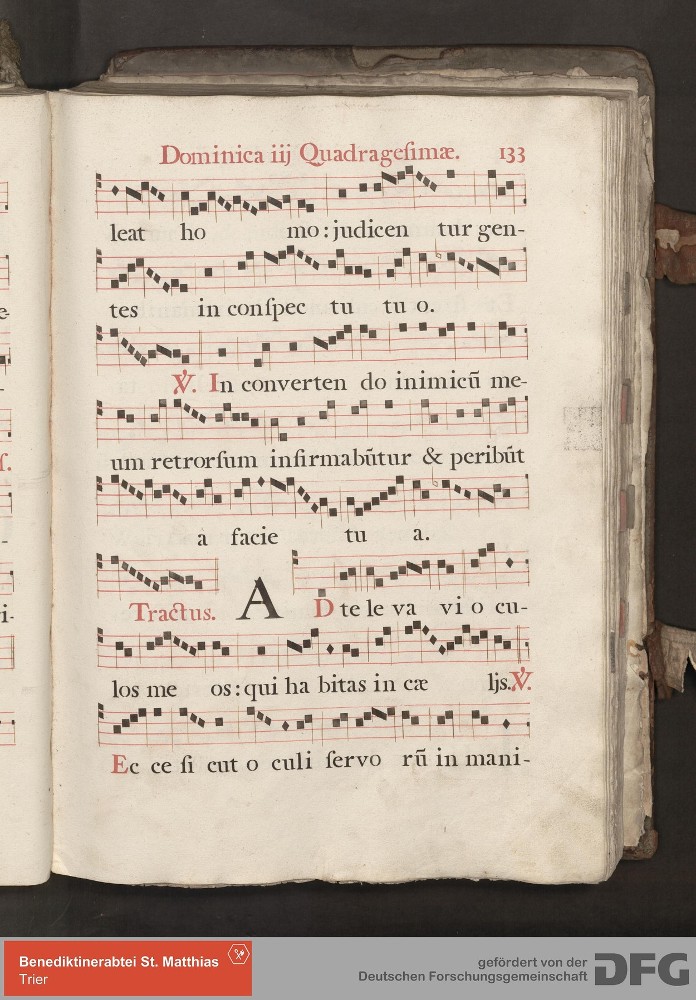 Dominica iij Quadragesimæ. 133
leat ho mo: judicen tur gen-
tes in conſpec tu tu o.
℣. In converten do inimicū me-
um retrorſum infirmabūtur & peribūt
à facie tu a.
Tractus. AD te le va vi o cu-
los me os: qui ha bitas in cæ ljs. ℣.
Ec ce ſi cut o culi ſervo rū in mani-
Benediktinerabtei St. Matthias
Trier
gefördert von der
Deutschen Forschungsgemeinschaft
DFG